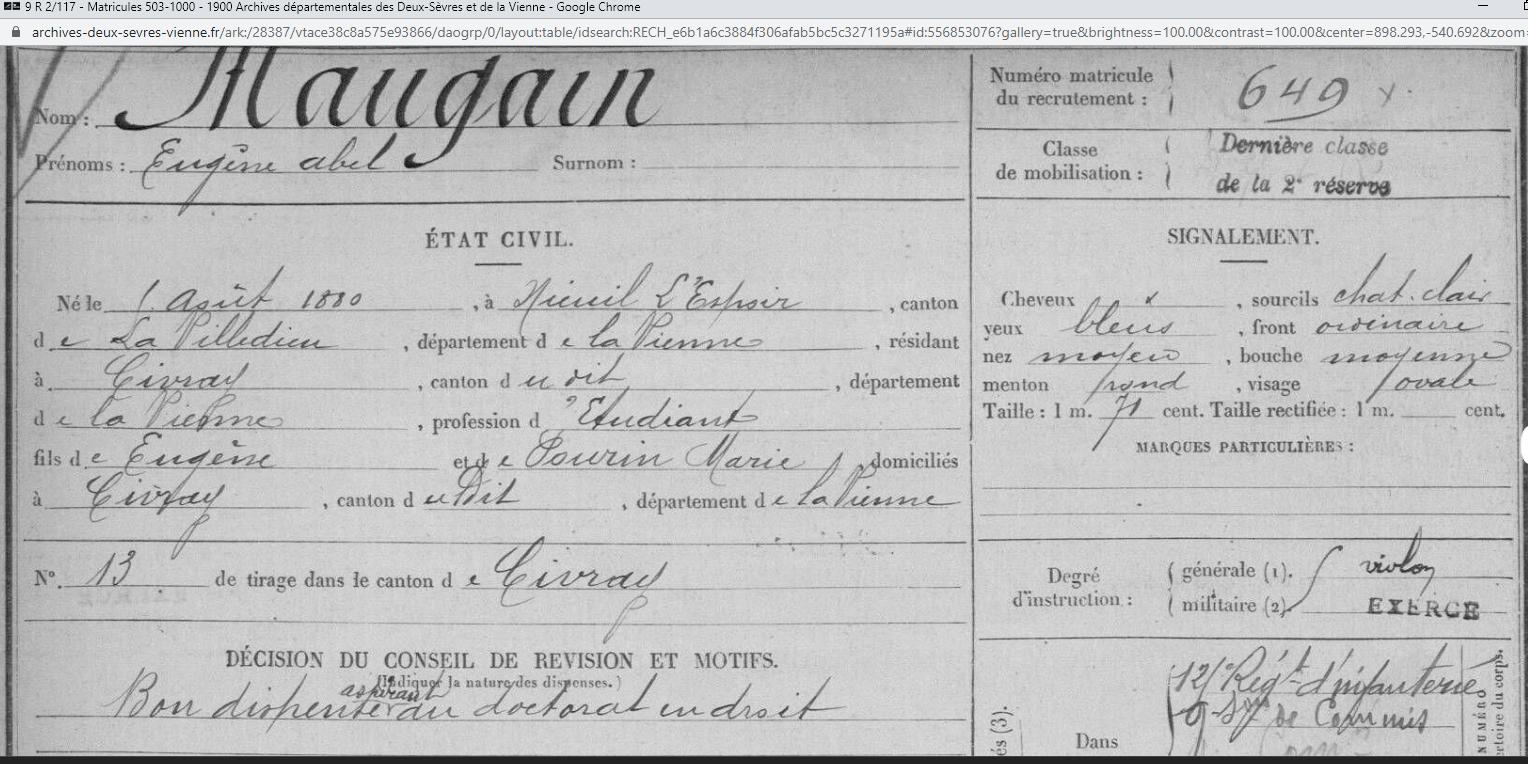 9 R 2/117 - Matricules 503-1000 - 1900 Archives départementales des Deux-Sèvres et de la Vienne - Google Chrome
archives-deux-sevres-vienne.fr/ark:/28387/vtace38c8a575e93866/daogrp/0/layout:table/idsearch:RECH_e6b1a6c3884f306afab5bc5c3271195a#id:556853076?gallery=true&brightness=100.00&contrast=100.00&center=898.293,-540.692&zoom=
Nom : Maugain
Prénoms : Eugène abel Surnom :
Numéro matricule du recrutement : 649 x.
Classe de mobilisation : Dernière classe de la 2e réserve
ÉTAT CIVIL.
Né le 1 Août 1880, à Nieuil L'Espoir, canton
de La Villedieu, département de la Vienne, résidant
à Civray, canton du dit, département
de la Vienne, profession d'Etudiant
fils de Eugène et de Pourin Marie, domiciliés
à Civray, canton du Dit, département de la Vienne
N° 13 de tirage dans le canton de Civray
DÉCISION DU CONSEIL DE REVISION ET MOTIFS.
(Indiquer la nature des dispenses.)
aspirant
Bon dispensé au doctorat en droit
SIGNALEMENT.
Cheveux x, sourcils chat. clair
yeux bleus, front ordinaire
nez moyen, bouche moyenne
menton rond, visage ovale
Taille : 1 m. 71 cent. Taille rectifiée : 1 m. cent.
MARQUES PARTICULIÈRES :
Degré d'instruction : générale (1). violon
militaire (2). EXERCÉ
Régt d'infanterie
de Commis
Dans
és (3).
NUMÉRO
ertoire du corps.